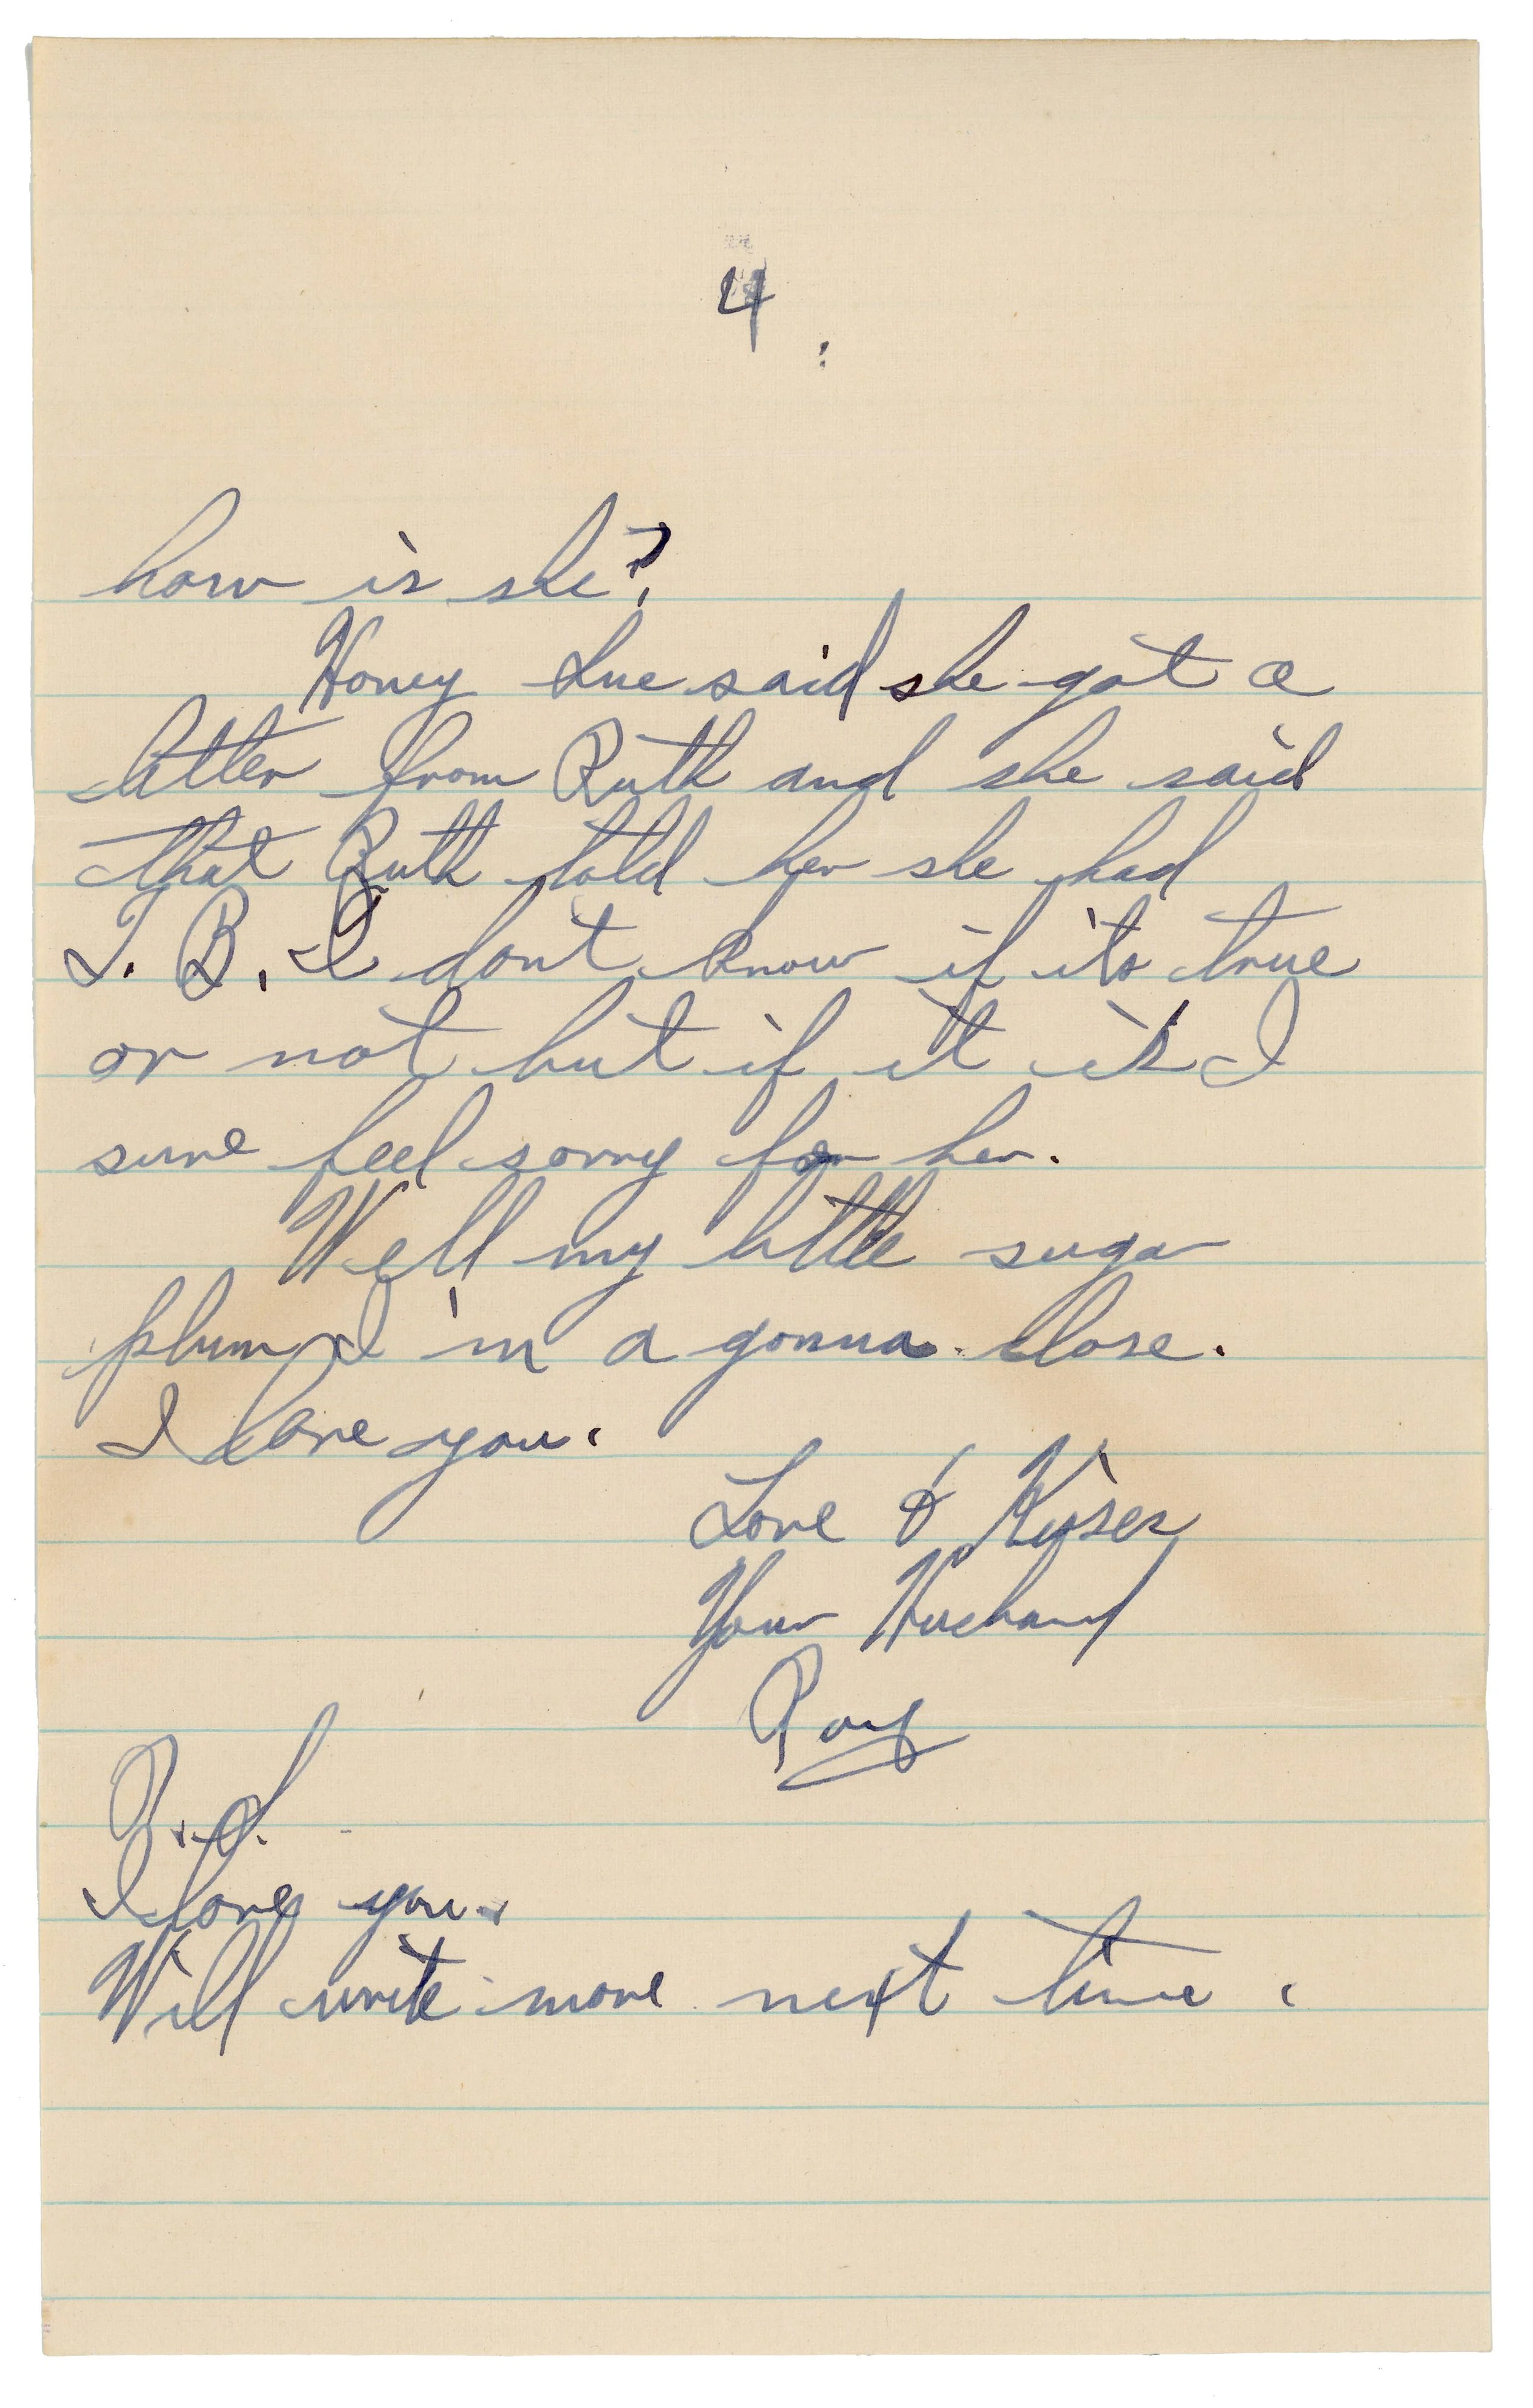 4
how is she?
Honey Sue said she got a
letter from Ruth and she said
that Ruth told her she had
T. B. I dont know if its true
or not but if it is I
sure feel sorry for her.
Well my little sugar
plum I'm a gonna close.
I love you.
Love & Kisses
Your Husband
Ray
P.S.
I love you.
Will write more next time.